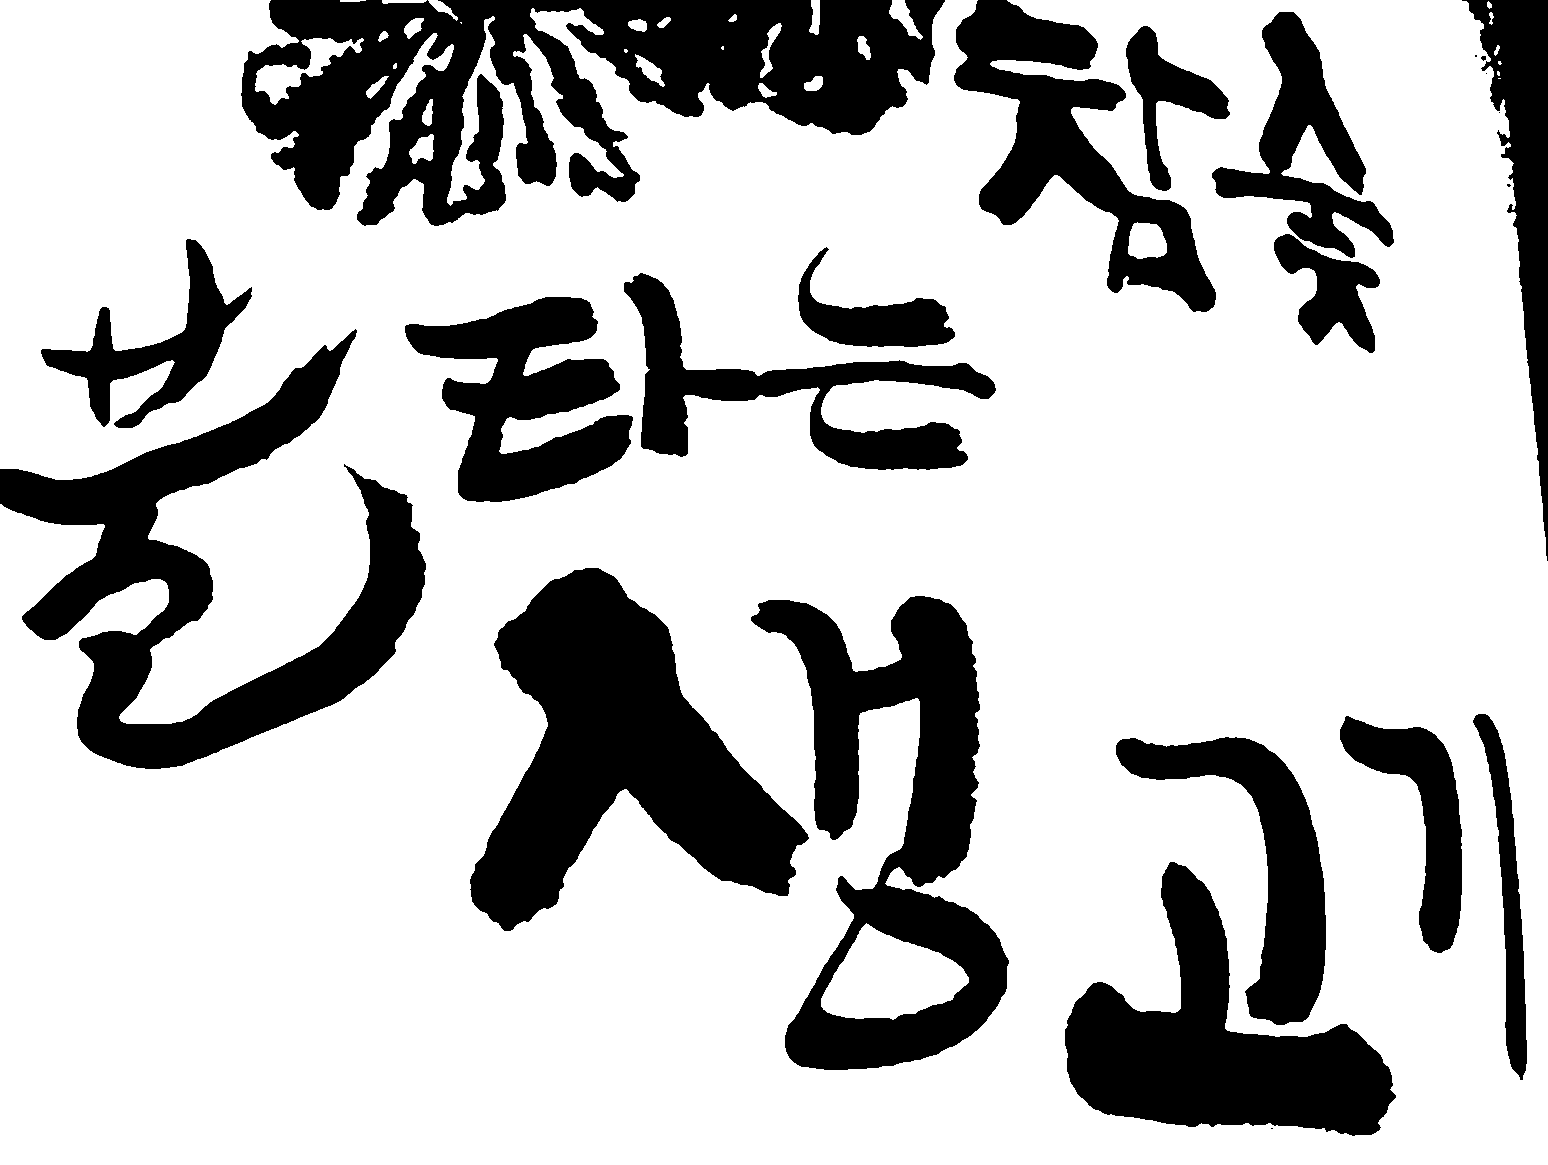 참숯
불타는
생고기